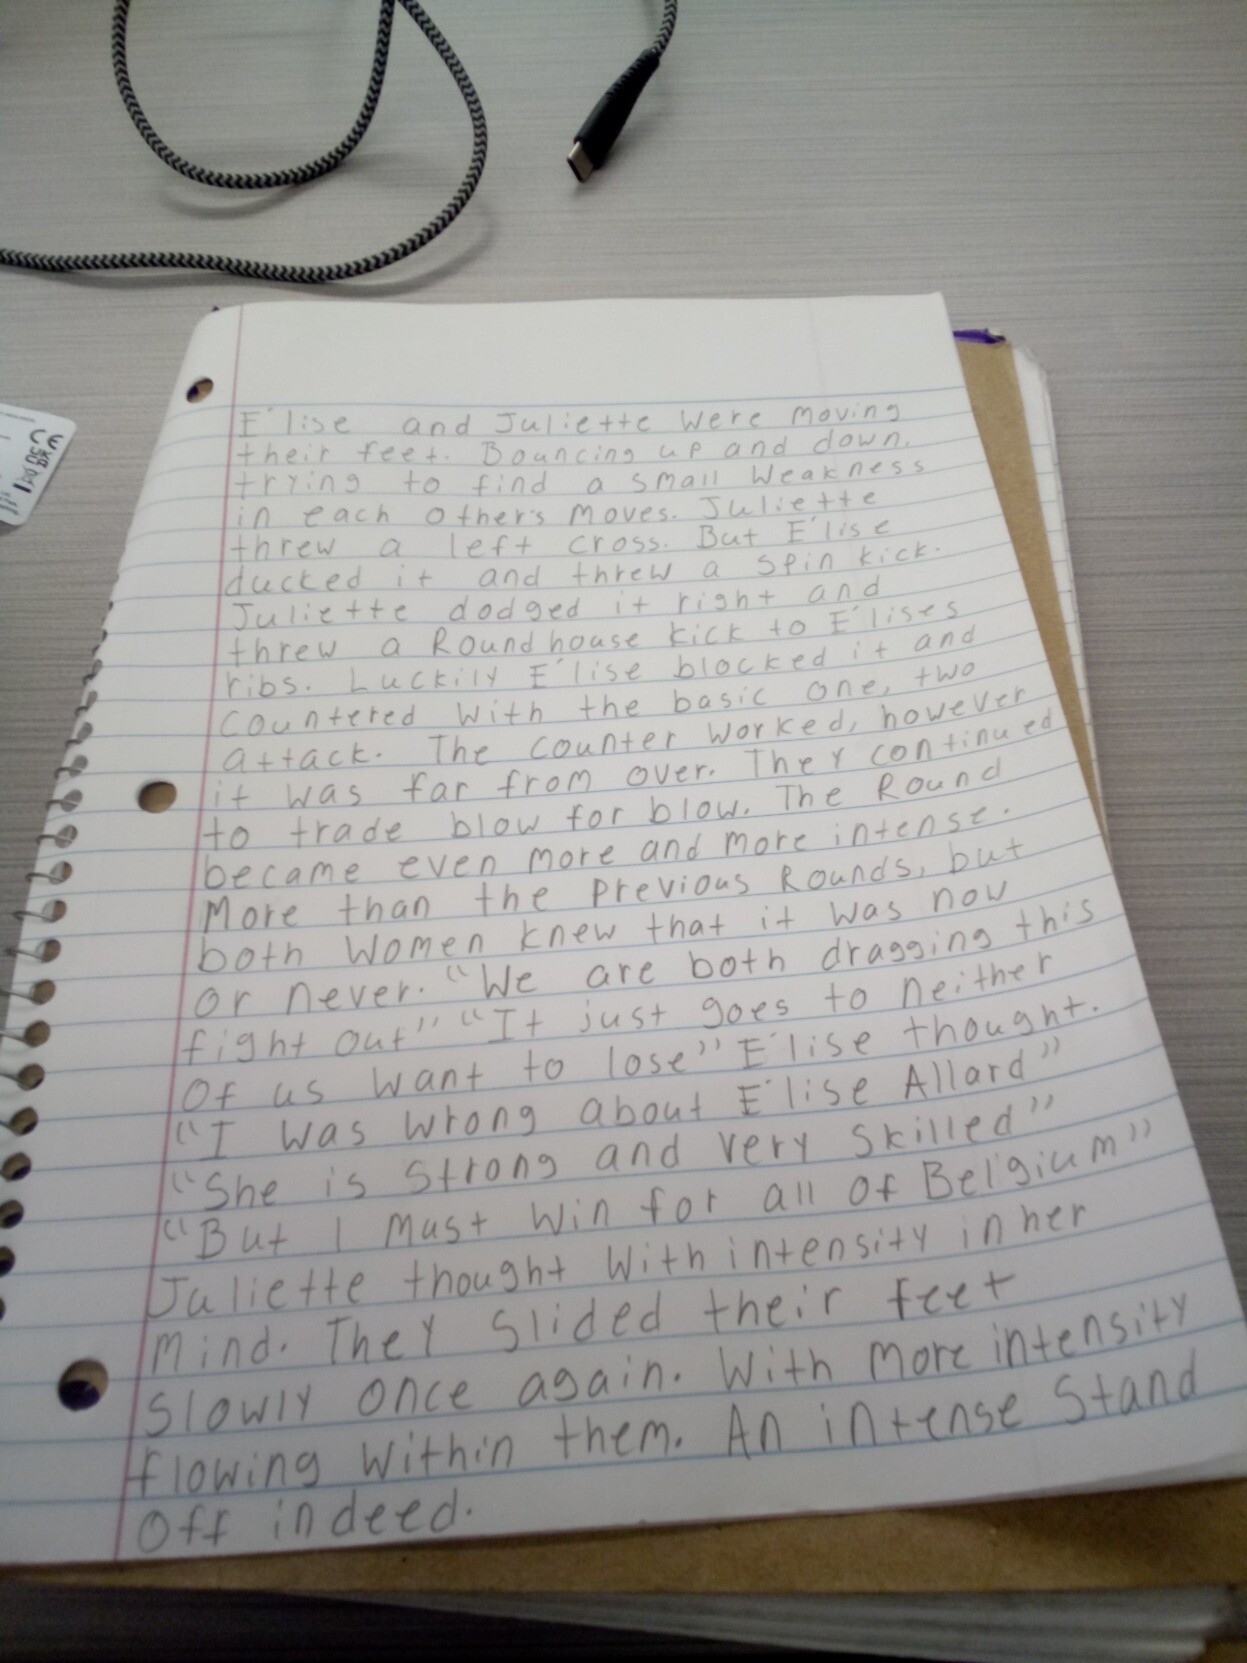 E'lise and Juliette were moving
their feet. Bouncing up and down.
trying to find a small weakness
in each other's moves. Juliette
threw a left cross. But E'lise
ducked it and threw a spin kick.
Juliette dodged it right and
threw a Roundhouse kick to E'lises
ribs. Luckily E'lise blocked it and
countered with the basic one, two
attack. The counter worked, however
it was far from over. They continued
to trade blow for blow. The Round
became even more and more intense.
More than the previous Rounds, but
both women knew that it was now
or never. "We are both dragging this
fight out" "It just goes to neither
of us want to lose" E'lise thought.
"I was wrong about E'lise Allard"
"She is strong and very skilled"
"But I must win for all of Belgium"
Juliette thought with intensity in her
mind. They slided their feet
slowly once again. With more intensity
flowing within them. An intense stand
off indeed.